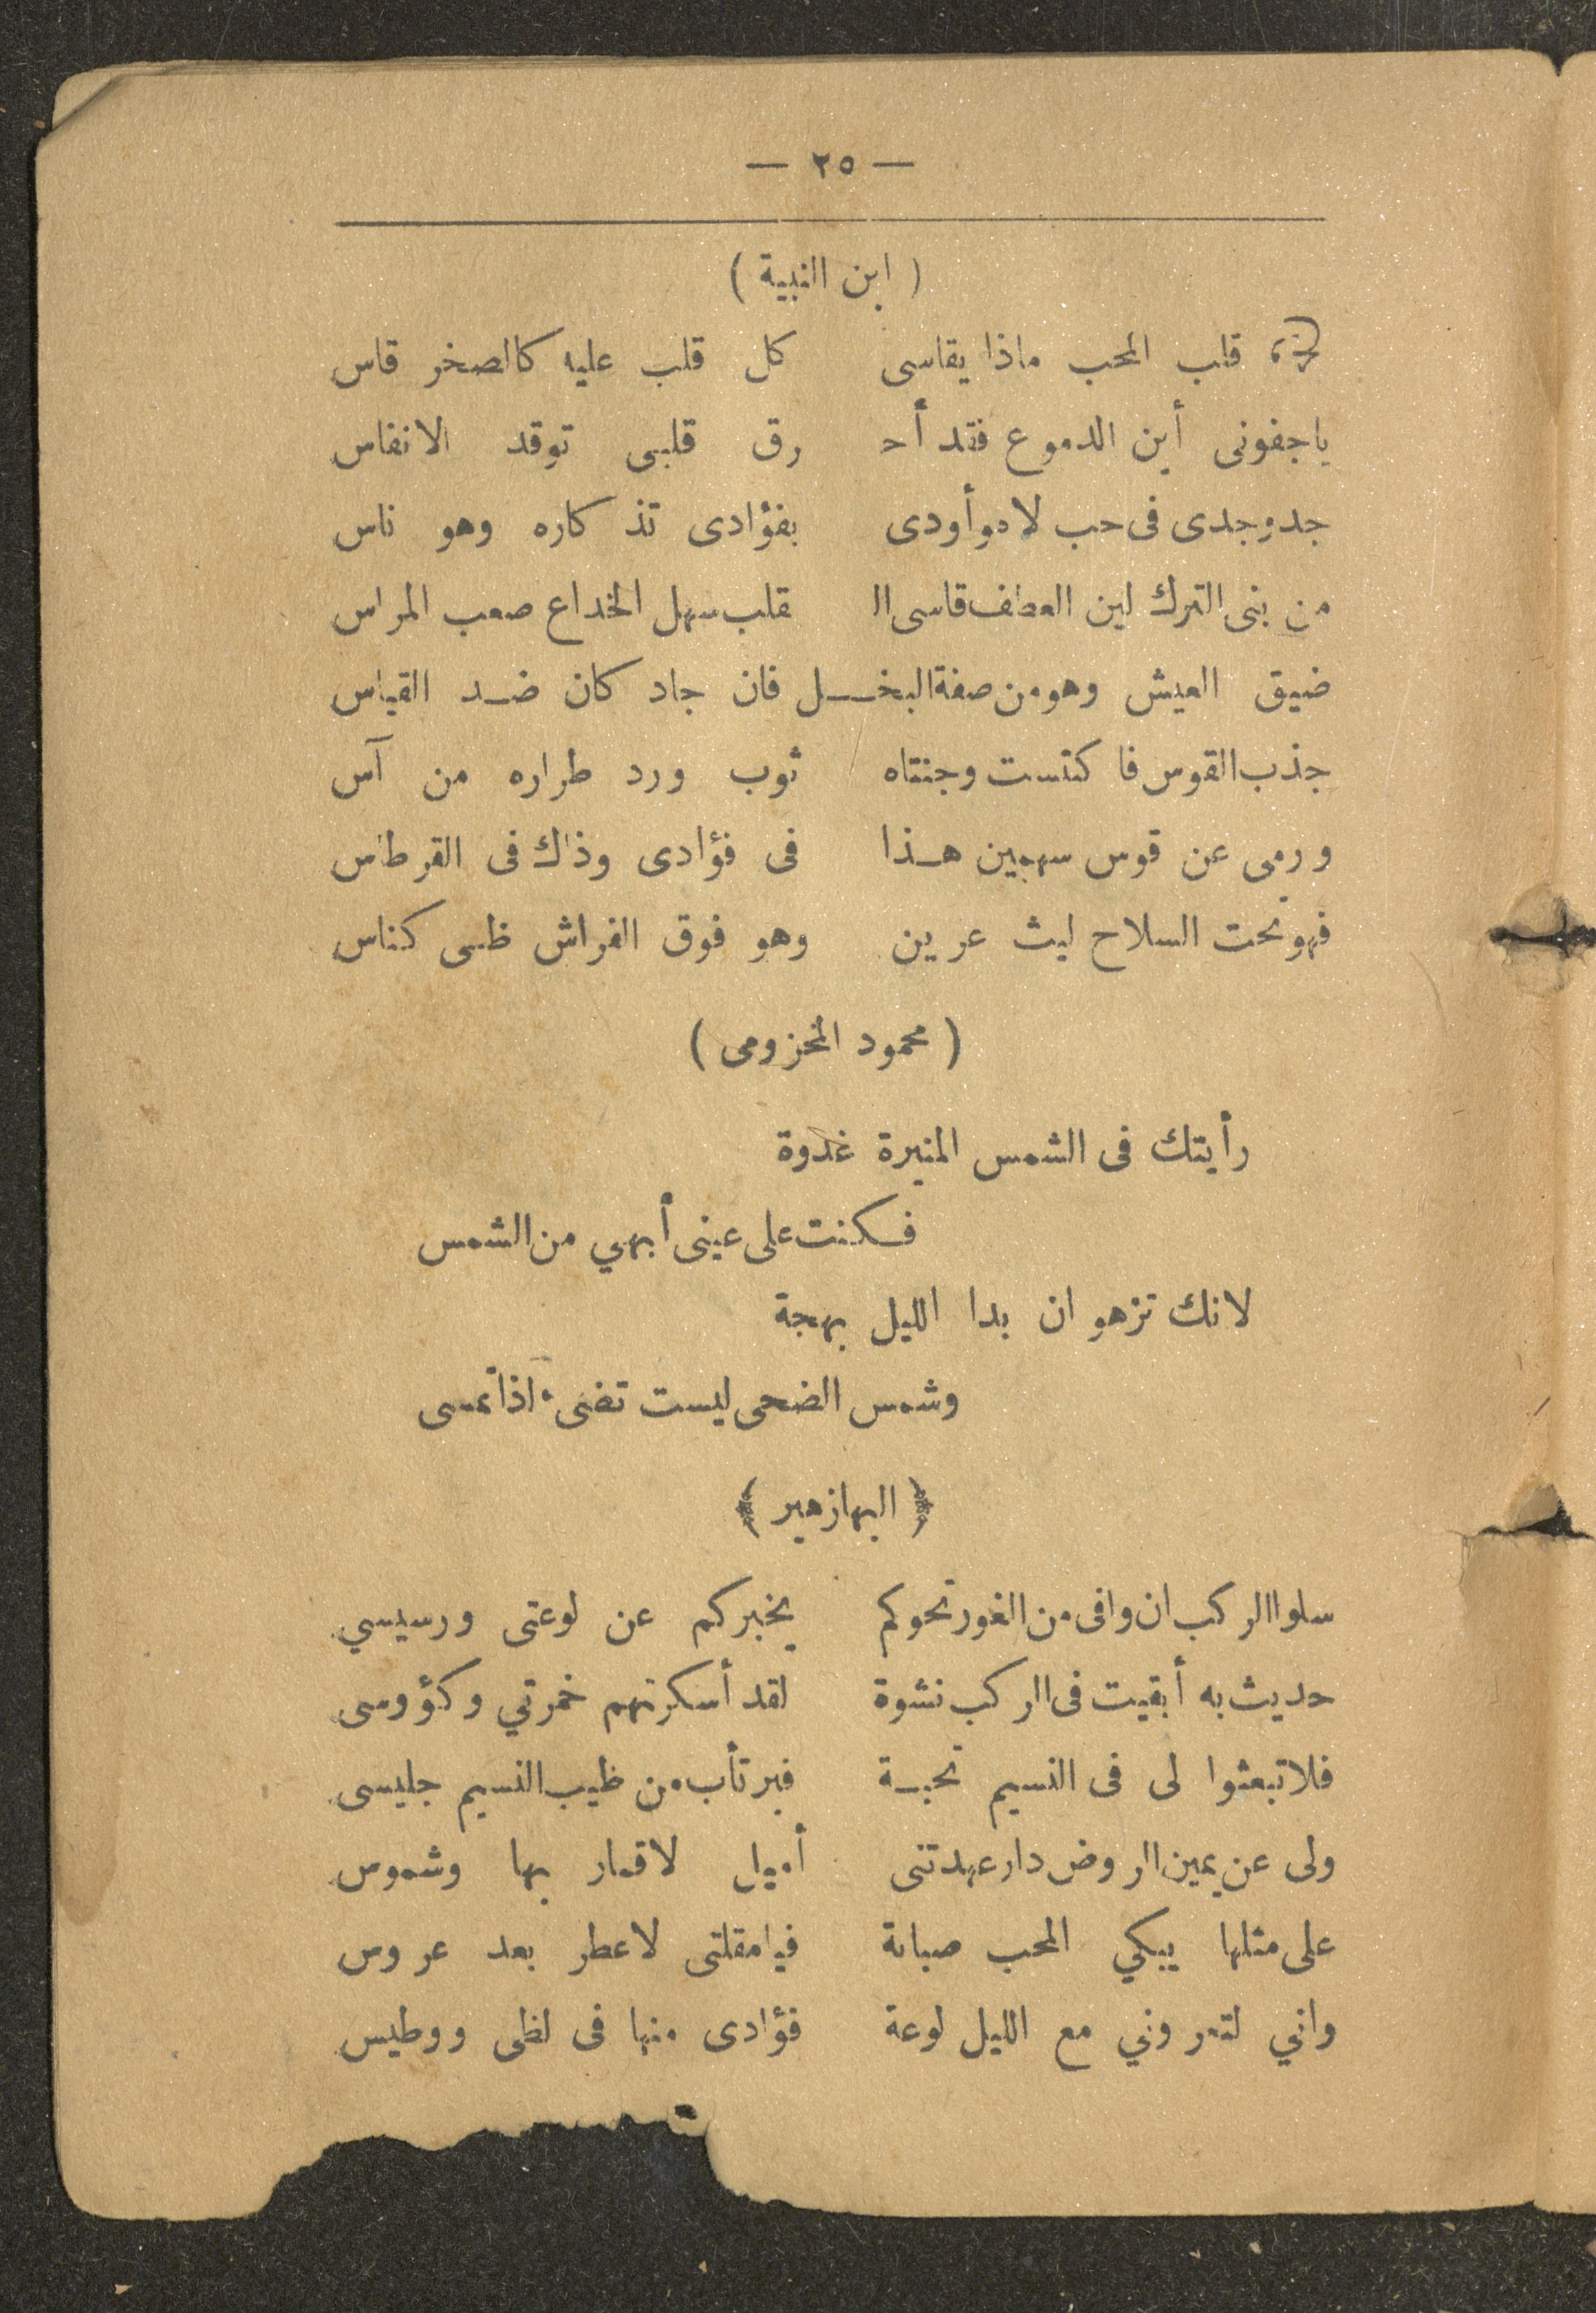 — ٢٥ —
( ابن النبية )
قلب المحب ماذا يقاسى كل قلب عليه كالصخر قاس
ياجفونى أين الدموع فقد أحـ رق قلبى توقد الانفاس
جد وجدى فى حب لاه وأودى بفؤادى تذ كاره وهو ناس
من بنى الترك لين العطف قاسى الـ قلب سهل الخداع صعب المراس
ضيق العيش وهو من صفة البخـــل فان جاد كان ضـد القياس
جذب القوس فا كتست وجنتاه ثوب ورد طرازه من آس
ورمى عن قوس سهمين هـذا فى فؤادى وذاك فى القرطاس
فهو تحت السلاح ليث عرين وهو فوق الفراش ظبى كناس
( محمود المخزومى )
رأيتك فى الشمس المنيرة غدوة
فـكنت على عينى أبهي من الشمس
لانك تزهو ان بدا الليل بهجة
وشمس الضحى ليست تضىء اذا تمسى
﴿ البهازهير ﴾
سلوا الركب ان وافى من الغور نحوكم يخبركم عن لوعتى ورسيسي
حديث به أبقيت فى الركب نشوة لقد أسكرتهم خمرتي وكؤوسى
فلا تبعثوا لى فى النسيم تحيـة فيرتأب من طيب النسيم جليسى
ولى عن يمين الروض دار عهدتنى أميل لاقمار بها وشموس
على مثلها يبكي المحب صبابة فيامقلتى لاعطر بعد عروس
واني لتعروني مع الليل لوعة فؤادى منها فى لظى ووطيس